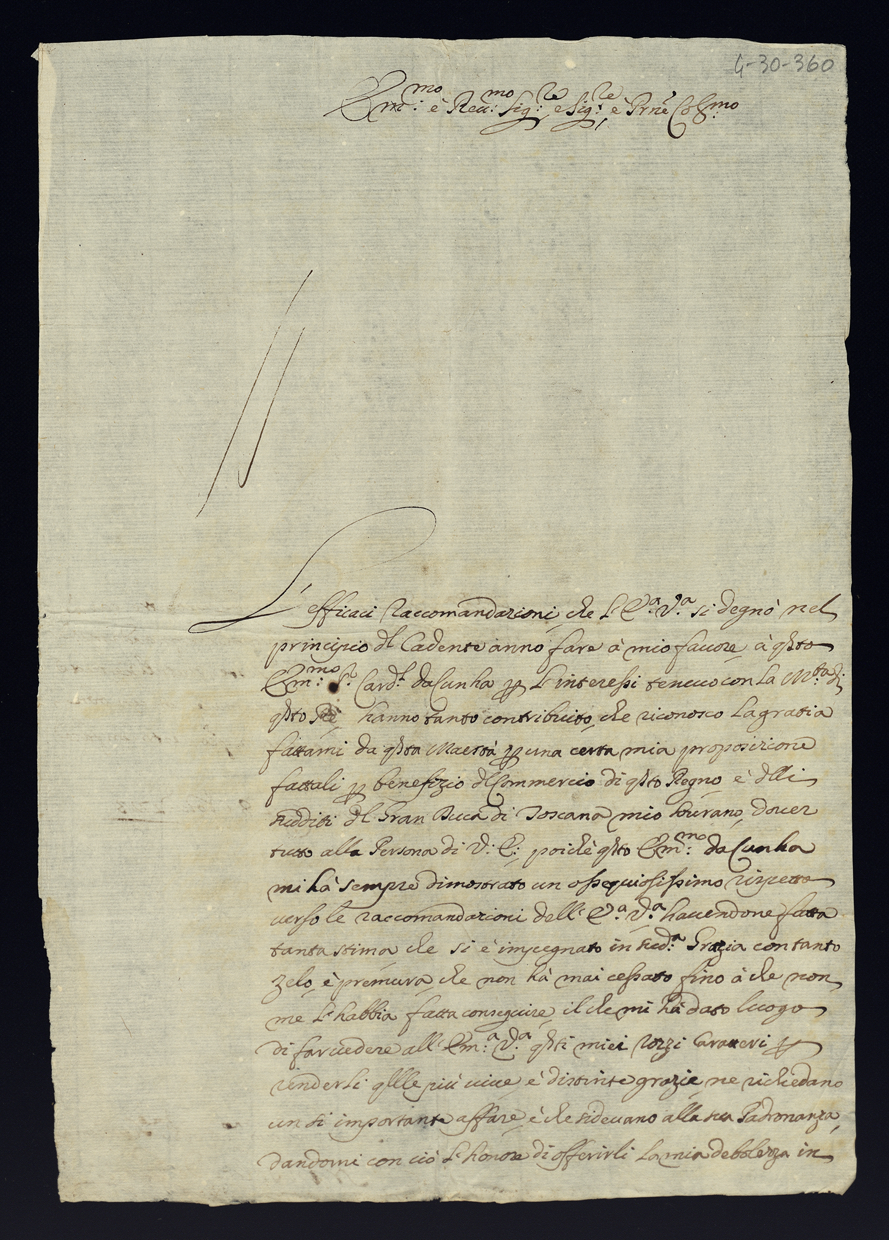 4-30-360
Em:mo e Reu:mo Sig:re e Sig:re e Prne Col:mo
L'efficaci raccomandazioni, che L'E:a V:a si degnò nel
principio dl Cadente anno fare à mio fauore, à qsto
Em:mo S:r Card:l da Cunha p L'interessi teneuo con La M:tà di
qsto Rè hanno tanto contribuito, che riconosco La gratia
fattami da qsta Maestà p una certa mia proposizione
fattali p benefizio dl Commercio di qsto Regno e dlli
sudditi dl Gran Duca di Toscana mio Sourano, douer
tutto alla Persona di V: E: poiche qsto Em:mo da Cunha
mi hà sempre dimostrato un ossequiosissimo rispetto
uerso le raccomandazioni dell' E:a V:a hauendone fatta
tanta stima che si è impegnato in sud:a Grazia con tanto
zelo, e premura, che non hà mai cessato fino à che non
me L'habbia fatta conseguire, il che mi hà dato luogo
di far uedere all' Em:a V:a qsti miei rozzi Caratteri p
renderli qlle più uiue e distinte grazie, ne richiedano
un si importante affare, e che si deuano alla sua Padronanza,
dandomi con ciò L'honore di offerirli La mia debolezza in